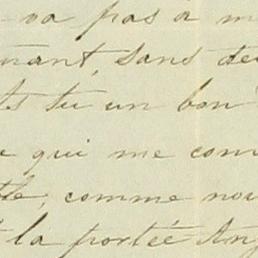 va pas à m
nant, sans de
ts tu un bon
e qui me com
tte, comme nou
la portée Ang